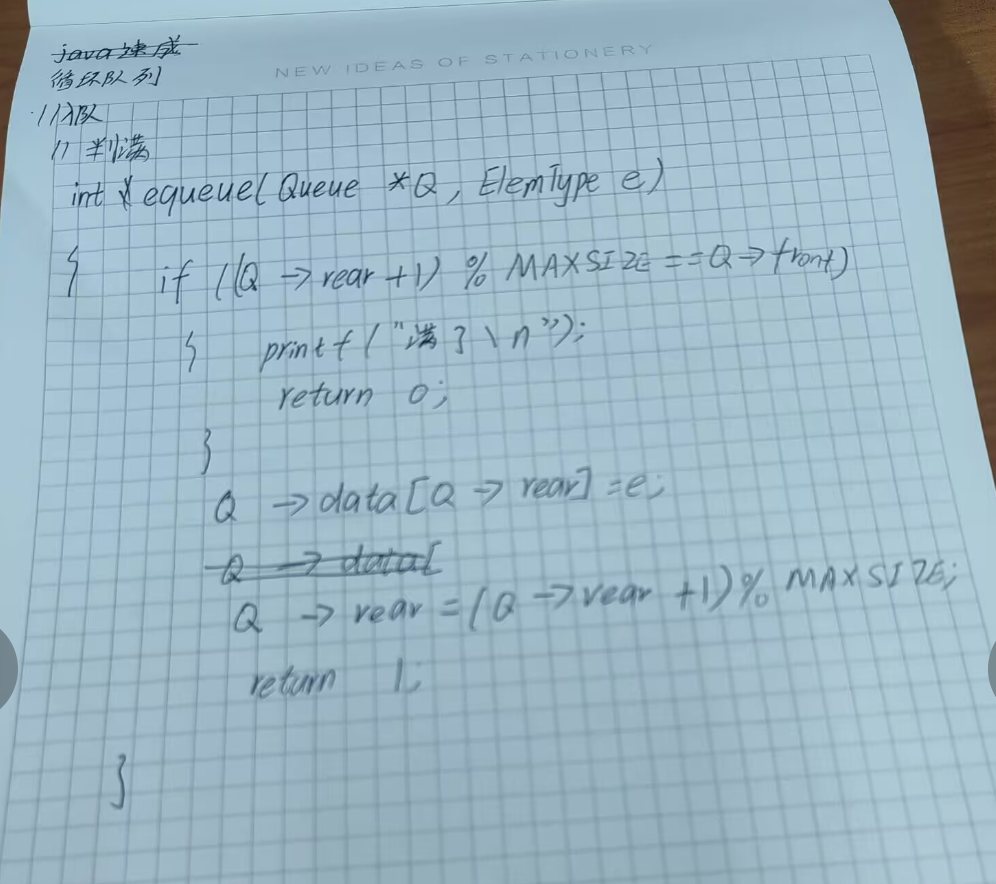 java速成
循环队列
NEW IDEAS OF STATIONERY
//入队
// 判满
int equeue(Queue *Q, ElemType e)
{ if ((Q -> rear +1) % MAXSIZE == Q -> front)
{ printf("满了\n");
return 0;
}
Q -> data[Q -> rear] = e;
Q -> data[
Q -> rear = (Q -> rear +1) % MAXSIZE;
return 1;
}